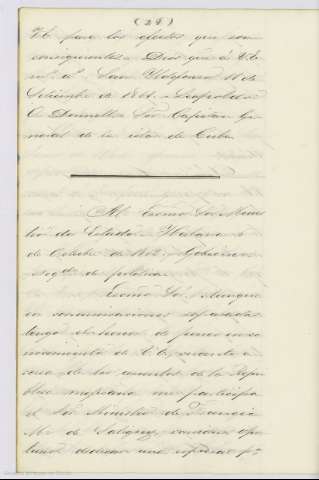 (28)
V.E. para los efectos que son
consiguientes. Dios gue. á V.E.
ms. as. San Ildefonso 11 de
Setiembre de 1861. Leopoldo
O Donnell. Sor. Capitan Ge-
neral de la isla de Cuba.
Al Excmo Sor. Minis-
tro de Estado. Habana 6
de Octubre de 1862. Gobierno.
Negdo. de politica.
Excmo Sor. Aunque
en comunicaciones separadas
tengo el honor de poner en co-
nocimiento de V.E. cuanto a-
cerca de los asuntos de la Repú-
blica mejicana me participa
el Sor. Ministro de Francia
Mr. de Saligny, considero opor-
tuno dedicar una especial pa-